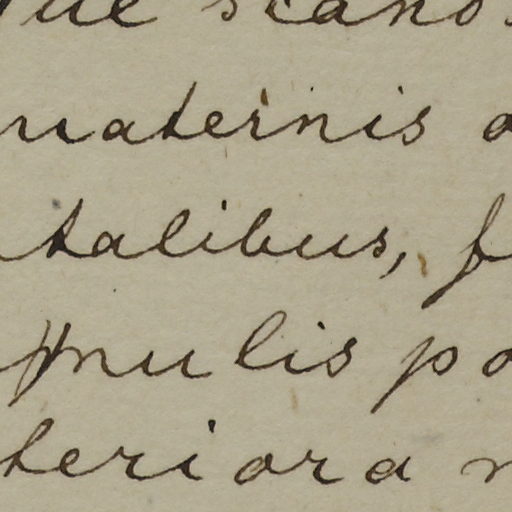 ue scand
uaternis a
talibus, f
mulis po
teriora n